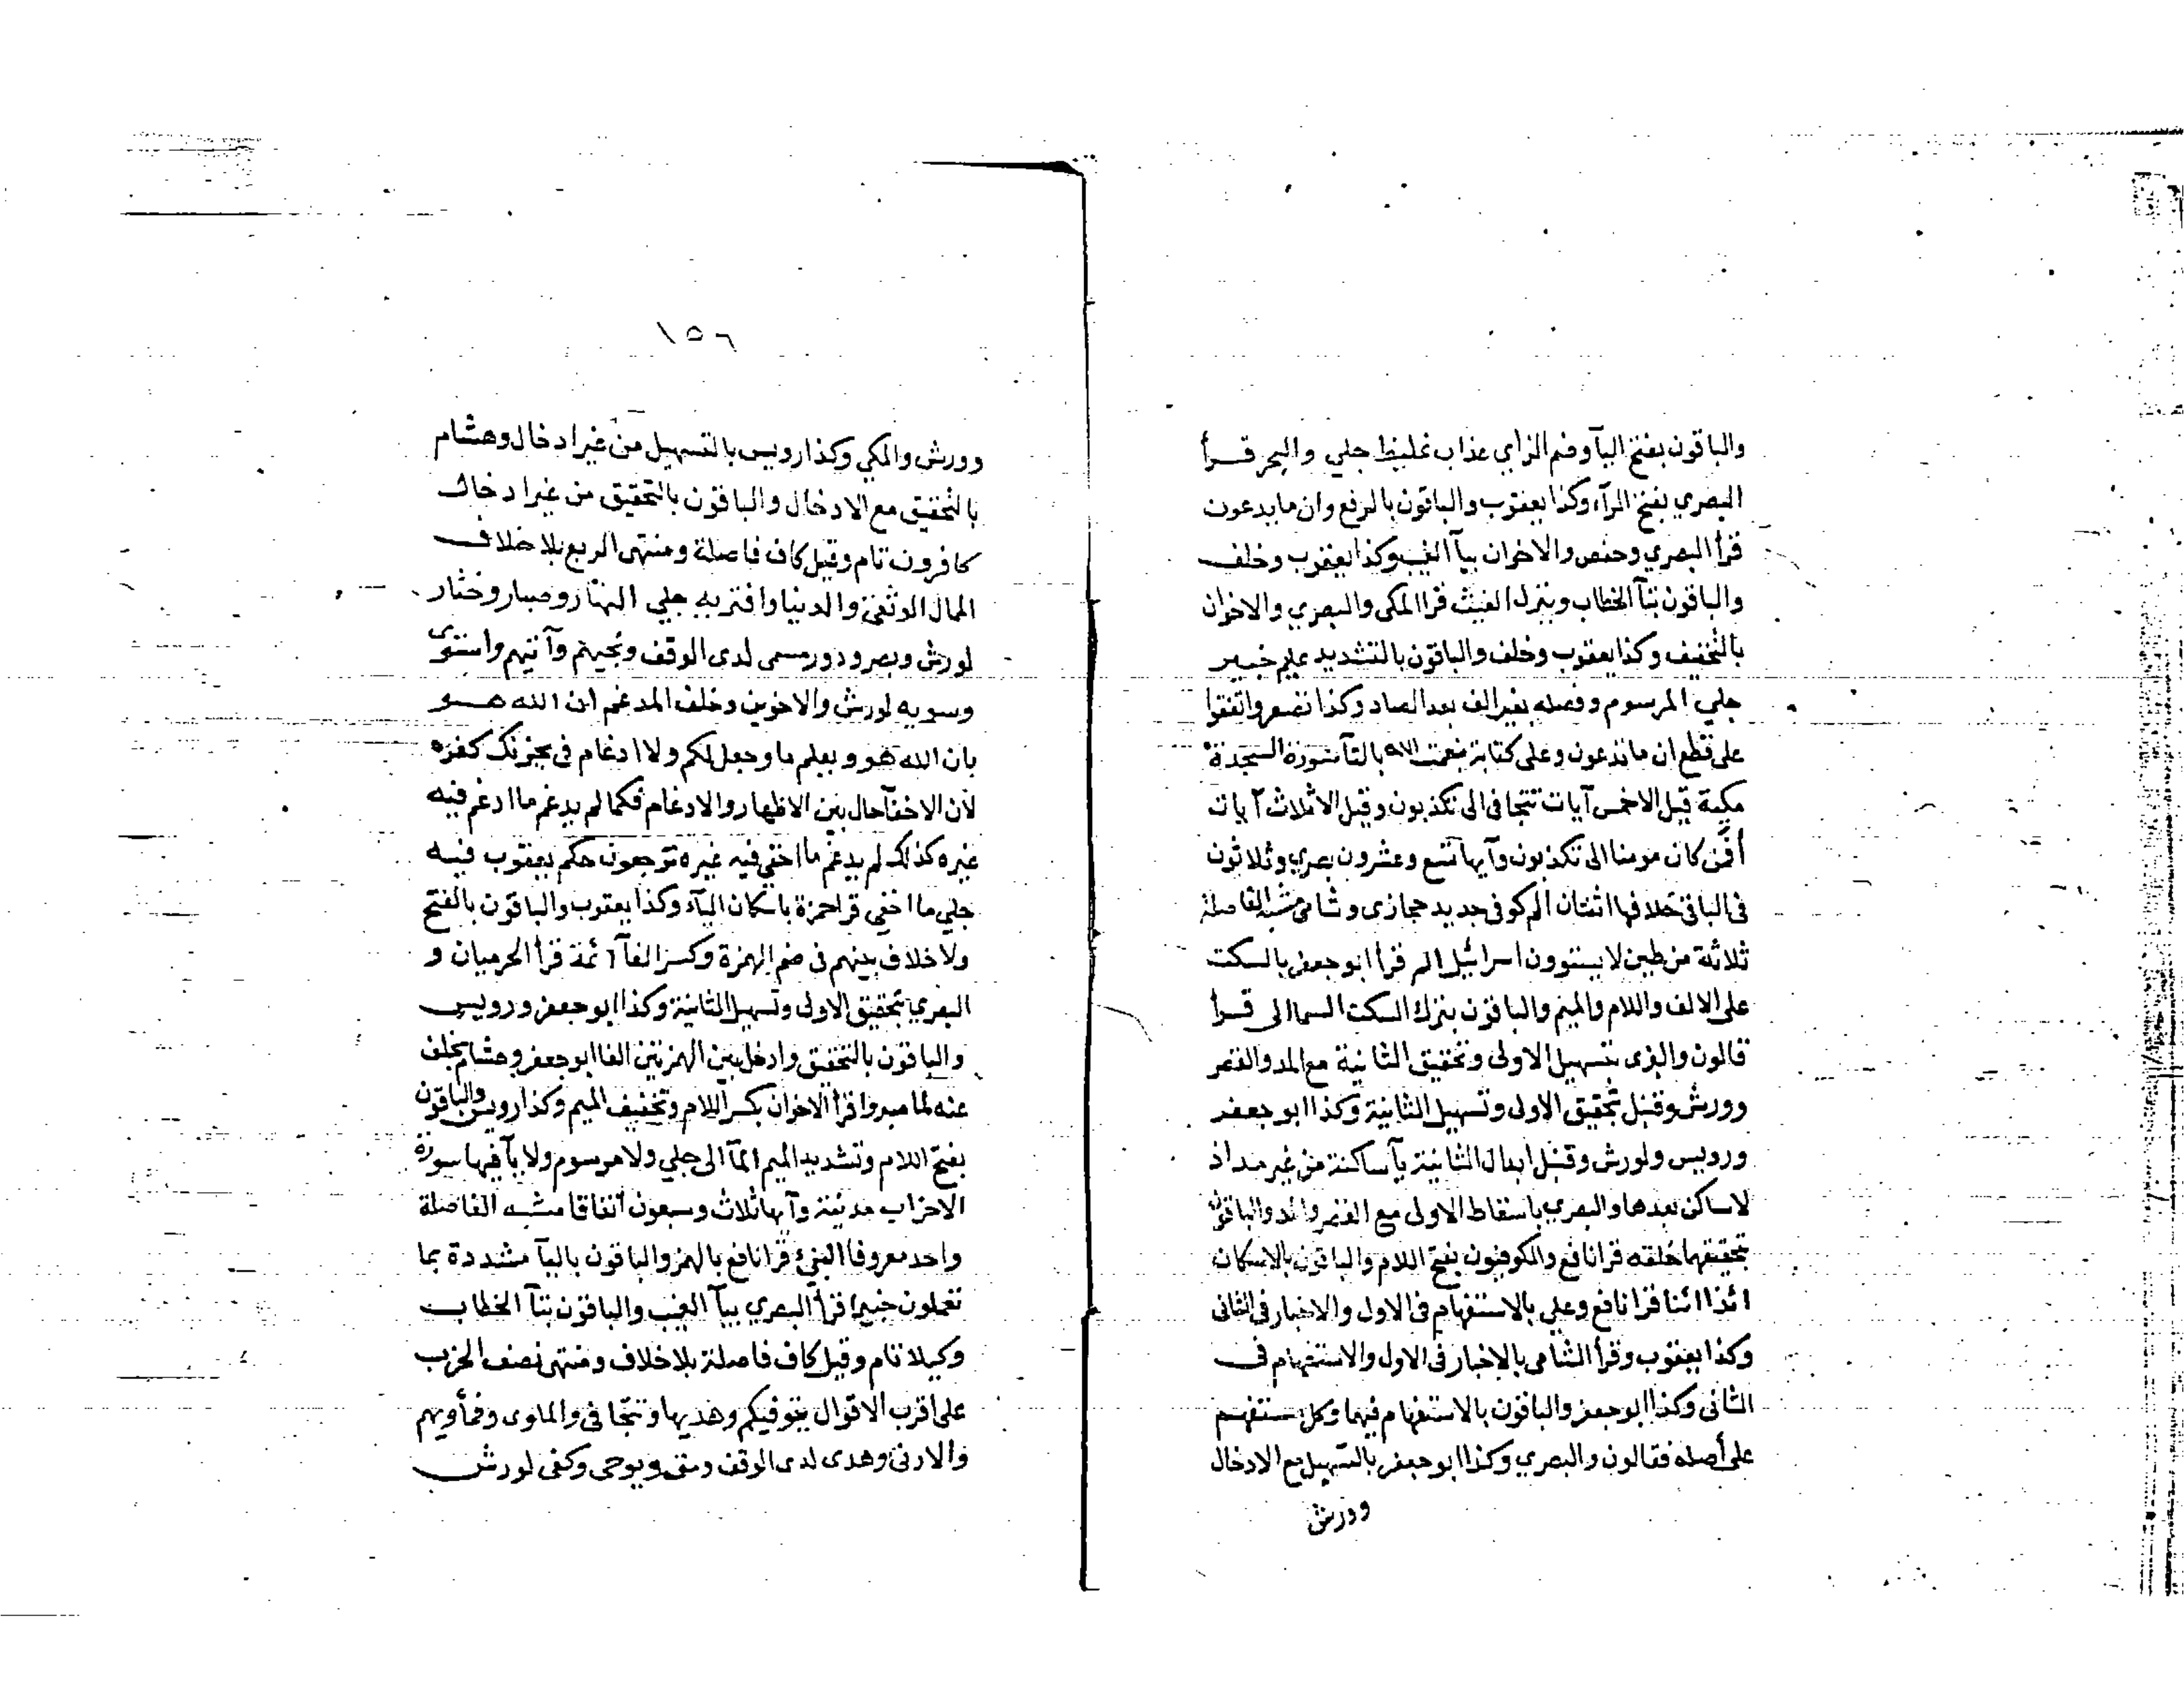 والباقون بفتح اليآ وضم الزاي عذاب غليظ جلي والبحر قرأ
البصري بفتح الرآء وكذا يعقوب والباقون بالرفع وان ما يدعون
قرأ البصري وحفص والاخوان بيآ الغيب وكذا يعقوب وخلف
والباقون بتآ الخطاب وينزل الغيث قرا المكى والبصري والاخوان
بالتخفيف وكذا يعقوب وخلف والباقون بالتشديد عليم خبير
جلي المرسوم وفصله بغير الف بعد الصاد وكذا تصعر واتفقوا
على قطع ان ما تدعون وعلى كتابة بنعمت الله بالتآ سورة السجدة
مكية قيل الا خمس آيات تتجافى الى تكذبون وقيل الا ثلاث آيات
أفمن كان مومنا الى تكذبون وآيها تسع وعشرون بصري وثلاثون
فى الباقى خلافها اثنتان الم كوفى جديد حجازى وشامى مشبه الفاصلة
ثلاثة من طين لا يستوون اسرائيل الم قرا ابو جعفر بالسكت
على الالف واللام والميم والباقون بترك السكت السما الى قرا
قالون والبزى بتسهيل الاولى وتحقيق الثانية مع المد والقصر
وورش وقنبل بتحقيق الاولى وتسهيل الثانية وكذا ابو جعفر
ورويس ولورش وقنبل ابدال الثانية يآ ساكنة من غير مد اذ
لا ساكن بعدها والبصري باسقاط الاولى مع القصر والمد والباقون
بتحقيقهما خلقه قرا نافع والكوفيون بفتح اللام والباقون بالاسكان
ائذا ائنا قرا نافع وعلي بالاستفهام فى الاول والاخبار فى الثانى
وكذا يعقوب وقرأ الشامى بالاخبار فى الاول والاستفهام فى
الثانى وكذا ابو جعفر والباقون بالاستفهام فيهما وكل مستفهم
على أصله فقالون والبصري وكذا ابو جعفر بالتسهيل مع الادخال
وورش
١٥٦
وورش والمكي وكذا رويس بالتسهيل من غير ادخال وهشام
بالتحقيق مع الادخال والباقون بالتحقيق من غير ادخال
كافرون تام وقيل كاف فاصلة ومنتهى الربع بلا خلاف
الممال الوثقى والدنيا وافتريه جلي النهار وصبار وختار
لورش وبصر ودور مسمى لدى الوقف ونجيهم وآتيهم واستوى
وسويه لورش والاخوين وخلف المدغم ان الله هو
بان الله هو ويعلم ما وجعل لكم ولا ادغام فى يحزنك كفره
لان الاخفآ حال بين الاظهار والادغام فكما لم يدغم ما ادغم فيه
غيره كذلك لم يدغم ما اخفي فيه غيره ترجعون حكم يعقوب فيه
جلي ما اخفي قرا حمزة باسكان اليآء وكذا يعقوب والباقون بالفتح
ولا خلاف بينهم فى ضم الهمزة وكسر الفآ أئمة قرأ الحرميان و
البصري بتحقيق الاولى وتسهيل الثانية وكذا ابو جعفر ورويس
والباقون بالتحقيق وادخل بين الهمزتين الفا ابو جعفر وهشام بخلف
عنه لما صبروا قرأ الاخوان بكسر اللام وتخفيف الميم وكذا رويس والباقون
بفتح اللام وتشديد الميم المآ الى جلي ولا مرسوم ولا يآ فيها سورة
الاحزاب مدنية وآيها ثلاث وسبعون اتفاقا مشبه الفاصلة
واحد معروفا النبئ قرا نافع بالهمز والباقون باليآ مشددة بما
تعملون خبيرا قرأ البصري بيآ الغيب والباقون بتآ الخطاب
وكيلا تام وقيل كاف فاصلة بلا خلاف ومنتهى نصف الحزب
على اقرب الاقوال يتوفيكم وهديها وتتجافى والماوى وفمأويهم
والادنى وهدى لدى الوقف ومتى ويوحى وكفى لورش